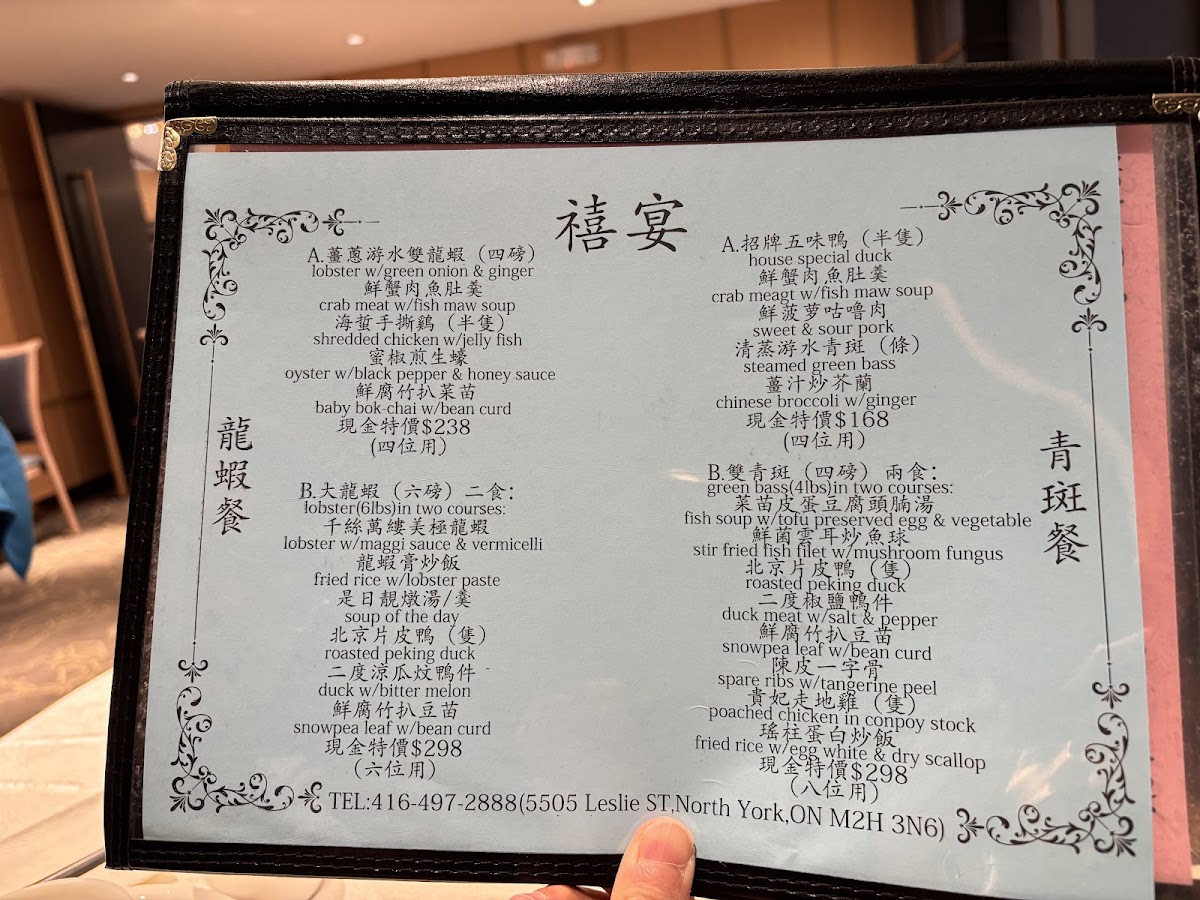 禧宴
龍蝦餐
A.薑蔥游水雙龍蝦（四磅）
lobster w/green onion & ginger
鮮蟹肉魚肚羹
crab meat w/fish maw soup
海蜇手撕鷄（半隻）
shredded chicken w/jelly fish
蜜椒煎生蠔
oyster w/black pepper & honey sauce
鮮腐竹扒菜苗
baby bok-chai w/bean curd
現金特價$238
(四位用)
B.大龍蝦（六磅）二食：
lobster(6lbs)in two courses:
千絲萬縷美極龍蝦
lobster w/maggi sauce & vermicelli
龍蝦膏炒飯
fried rice w/lobster paste
是日靚燉湯/羹
soup of the day
北京片皮鴨（隻）
roasted peking duck
二度涼瓜炆鴨件
duck w/bitter melon
鮮腐竹扒豆苗
snowpea leaf w/bean curd
現金特價$298
(六位用)
青斑餐
A.招牌五味鴨（半隻）
house special duck
鮮蟹肉魚肚羹
crab meagt w/fish maw soup
鮮菠萝咕嚕肉
sweet & sour pork
清蒸游水青斑（條）
steamed green bass
薑汁炒芥蘭
chinese broccoli w/ginger
現金特價$168
(四位用)
B.雙青斑（四磅）兩食：
green bass(4lbs)in two courses:
菜苗皮蛋豆腐頭腩湯
fish soup w/tofu preserved egg & vegetable
鮮菌雲耳炒魚球
stir fried fish filet w/mushroom fungus
北京片皮鴨（隻）
roasted peking duck
二度椒鹽鴨件
duck meat w/salt & pepper
鮮腐竹扒豆苗
snowpea leaf w/bean curd
陳皮一字骨
spare ribs w/tangerine peel
貴妃走地雞（隻）
poached chicken in conpoy stock
瑤柱蛋白炒飯
fried rice w/egg white & dry scallop
現金特價$298
(八位用)
TEL:416-497-2888(5505 Leslie ST,North York,ON M2H 3N6)